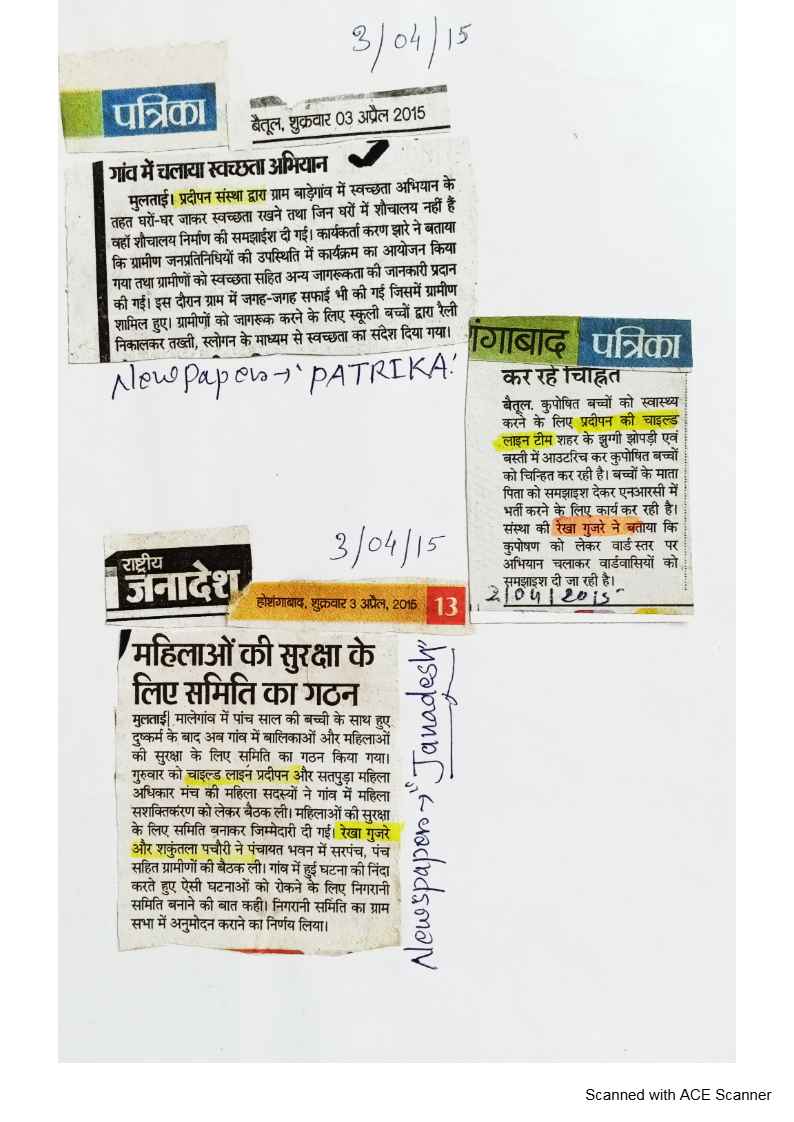 3/04/15
पत्रिका
बैतूल, शुक्रवार 03 अप्रैल 2015
गांव में चलाया स्वच्छता अभियान
मुलताई। प्रदीपन संस्था द्वारा ग्राम बाड़ेगांव में स्वच्छता अभियान के
तहत घरों-घर जाकर स्वच्छता रखने तथा जिन घरों में शौचालय नहीं हैं
वहाँ शौचालय निर्माण की समझाईश दी गई। कार्यकर्ता करण झारे ने बताया
कि ग्रामीण जनप्रतिनिधियों की उपस्थिति में कार्यक्रम का आयोजन किया
गया तथा ग्रामीणों को स्वच्छता सहित अन्य जागरूकता की जानकारी प्रदान
की गई। इस दौरान ग्राम में जगह-जगह सफाई भी की गई जिसमें ग्रामीण
शामिल हुए। ग्रामीणों को जागरूक करने के लिए स्कूली बच्चों द्वारा रैली
निकालकर तख्ती, स्लोगन के माध्यम से स्वच्छता का संदेश दिया गया।
Newspaper→'PATRIKA'
शंगाबाद पत्रिका
कर रहे चिह्नित
बैतूल. कुपोषित बच्चों को स्वास्थ्य
करने के लिए प्रदीपन की चाइल्ड
लाइन टीम शहर के झुग्गी झोपड़ी एवं
बस्ती में आउटरिच कर कुपोषित बच्चों
को चिन्हित कर रही है। बच्चों के माता
पिता को समझाइश देकर एनआरसी में
भर्ती करने के लिए कार्य कर रही है।
संस्था की रेखा गुजरे ने बताया कि
कुपोषण को लेकर वार्ड स्तर पर
अभियान चलाकर वार्डवासियों को
समझाइश दी जा रही है।
2/04/2015
3/04/15
राष्ट्रीय
जनादेश
होशंगाबाद, शुक्रवार 3 अप्रैल, 2015 13
महिलाओं की सुरक्षा के
लिए समिति का गठन
मुलताई| मालेगांव में पांच साल की बच्ची के साथ हुए
दुष्कर्म के बाद अब गांव में बालिकाओं और महिलाओं
की सुरक्षा के लिए समिति का गठन किया गया।
गुरुवार को चाइल्ड लाइन प्रदीपन और सतपुड़ा महिला
अधिकार मंच की महिला सदस्यों ने गांव में महिला
सशक्तिकरण को लेकर बैठक ली। महिलाओं की सुरक्षा
के लिए समिति बनाकर जिम्मेदारी दी गई। रेखा गुजरे
और शकुंतला पचौरी ने पंचायत भवन में सरपंच, पंच
सहित ग्रामीणों की बैठक ली। गांव में हुई घटना की निंदा
करते हुए ऐसी घटनाओं को रोकने के लिए निगरानी
समिति बनाने की बात कही। निगरानी समिति का ग्राम
सभा में अनुमोदन कराने का निर्णय लिया।
Newspaper→"Janadesh"
Scanned with ACE Scanner